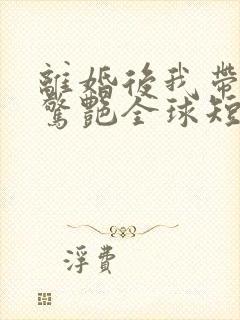 離婚後我帶
驚艷全球短
浮費